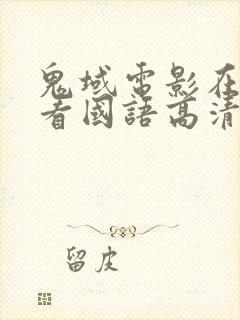 鬼域電影在
看國語高清
留皮